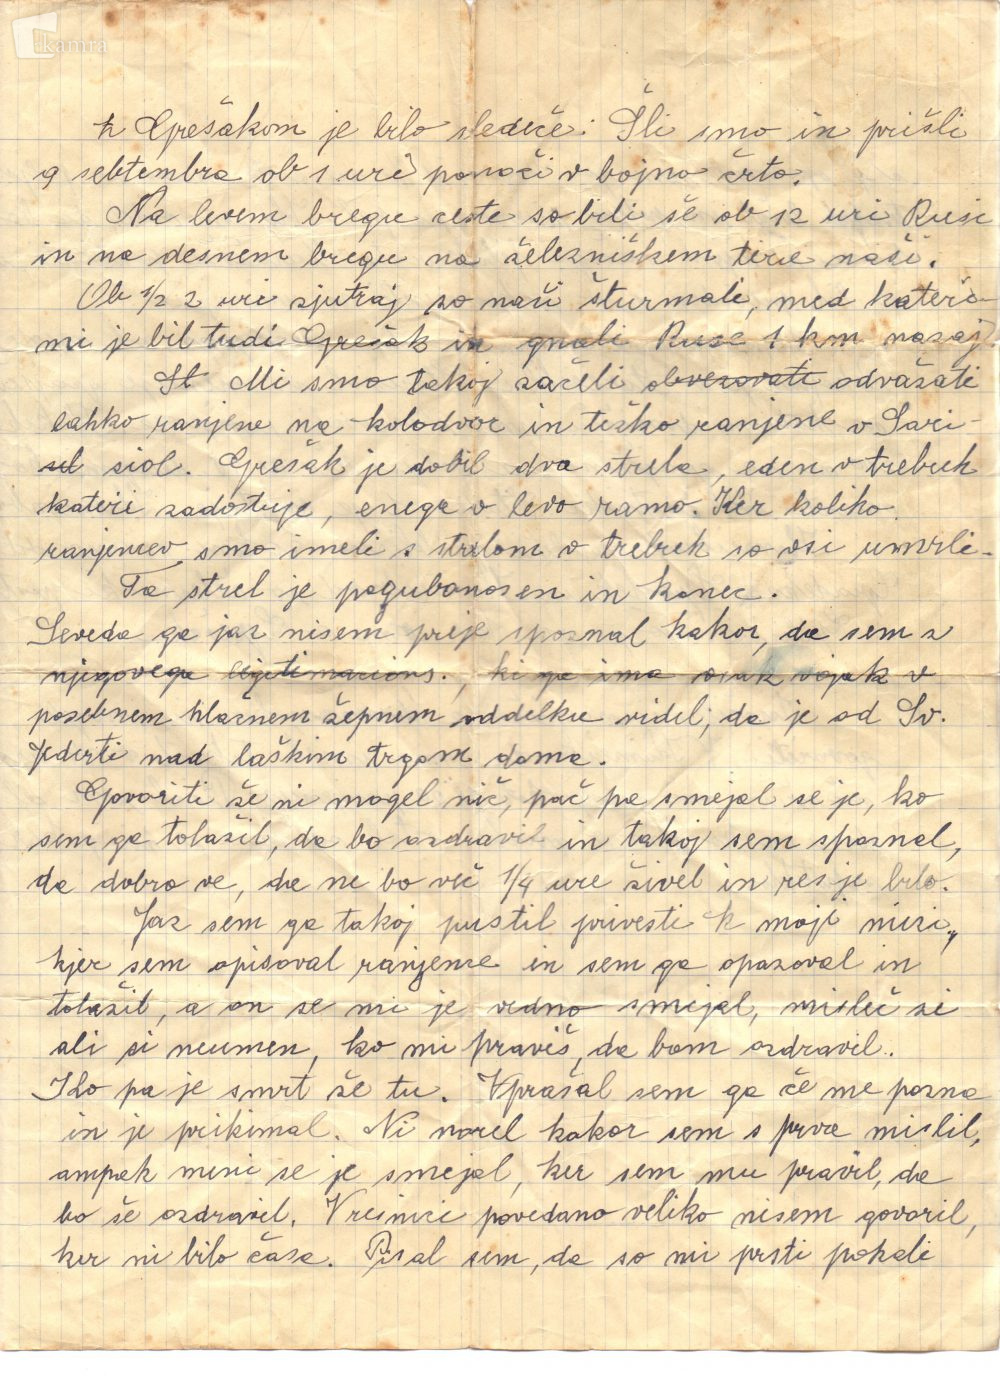 kamra
z Grešakom je bilo sledeče: Šli smo in prišli
9 sebtembra ob 1 uri ponoči v bojno črto.
Na levem bregu ceste so bili še ob 12 uri Rusi
in na desnem bregu na železniškem tiru naši.
Ob 1/2 2 uri zjutraj so naši šturmali, med kateri-
mi je bil tudi Grešak in gnali Ruse 1 km nazaj.
St Mi smo takoj začeli obvezovati odvažati
lahko ranjene na kolodvor in težko ranjene v Sari-
siol. Grešak je dobil dva strela, eden v trebuh
kateri zadostuje, enega v levo ramo. Ker koliko
ranjencev smo imeli s strelom v trebuh so vsi umrli.
Ta strel je pogubonosen in konec.
Seveda ga jaz nisem prije spoznal kakor, da sem z
njegovega legitimacions., ki ga ima vsak vojak v
posebnem hlačnem žepnem oddelku videl, da je od Sv.
Jederti nad laškim trgom doma.
Govoriti že ni mogel nič, pač pa smejal se je, ko
sem ga tolažil, da bo ozdravil in takoj sem spoznal,
da dobro ve, da ne bo več 1/4 ure živel in res je bilo.
Jaz sem ga takoj pustil privesti k moji mizi,
kjer sem opisoval ranjence in sem ga opazoval in
tolažil, a on se mi je vedno smejal, misleč si
ali si neumen, ko mi praviš, da bom ozdravil.
Ko pa je smrt že tu. Vprašal sem ga če me pozna
in je prikimal. Ni norel kakor sem s prva mislil,
ampak meni se je smejal, ker sem mu pravil, da
bo še ozdravil. V resnici povedano veliko nisem govoril,
ker ni bilo časa. Pisal sem, da so mi prsti pokali